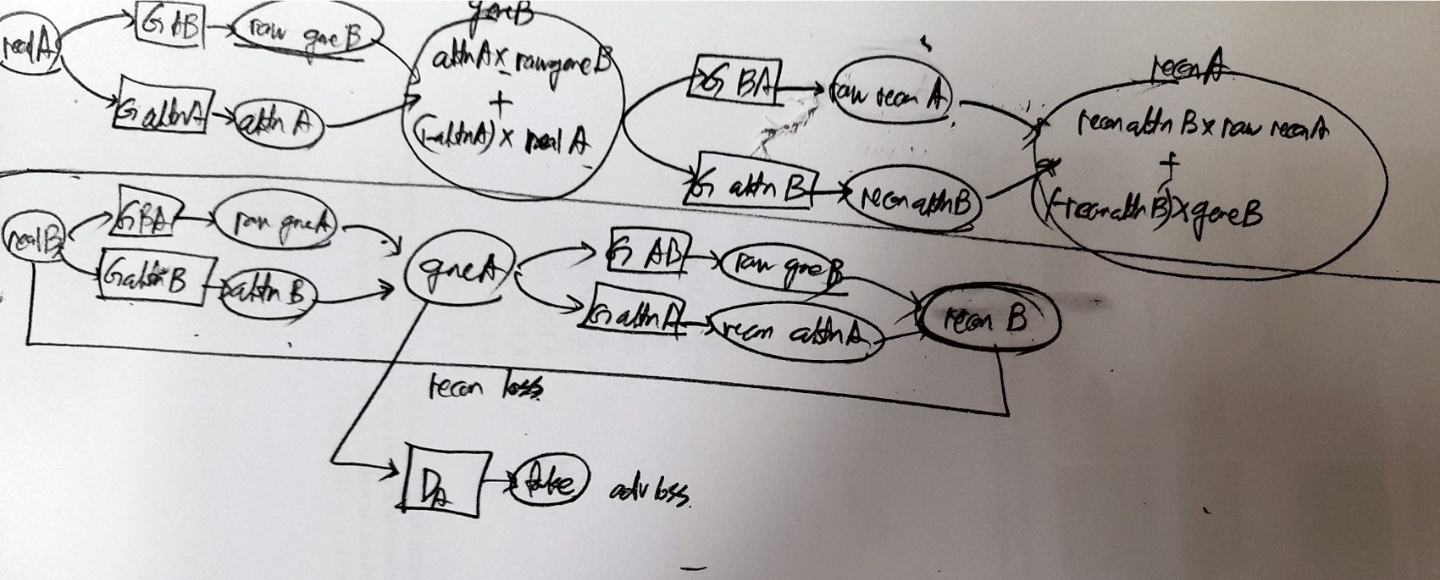 gene B
real A
G AB
raw gene B
G attn A
attn A
attn A x raw gene B
+
(1-attn A) x real A
G BA
raw recon A
G attn B
recon attn B
recon A
recon attn B x raw recon A
+
(1-recon attn B) x gene B
real B
G BA
raw gene A
G attn B
attn B
gene A
G AB
raw gene B
G attn A
recon attn A
recon B
recon loss
DA
fake
adv loss.